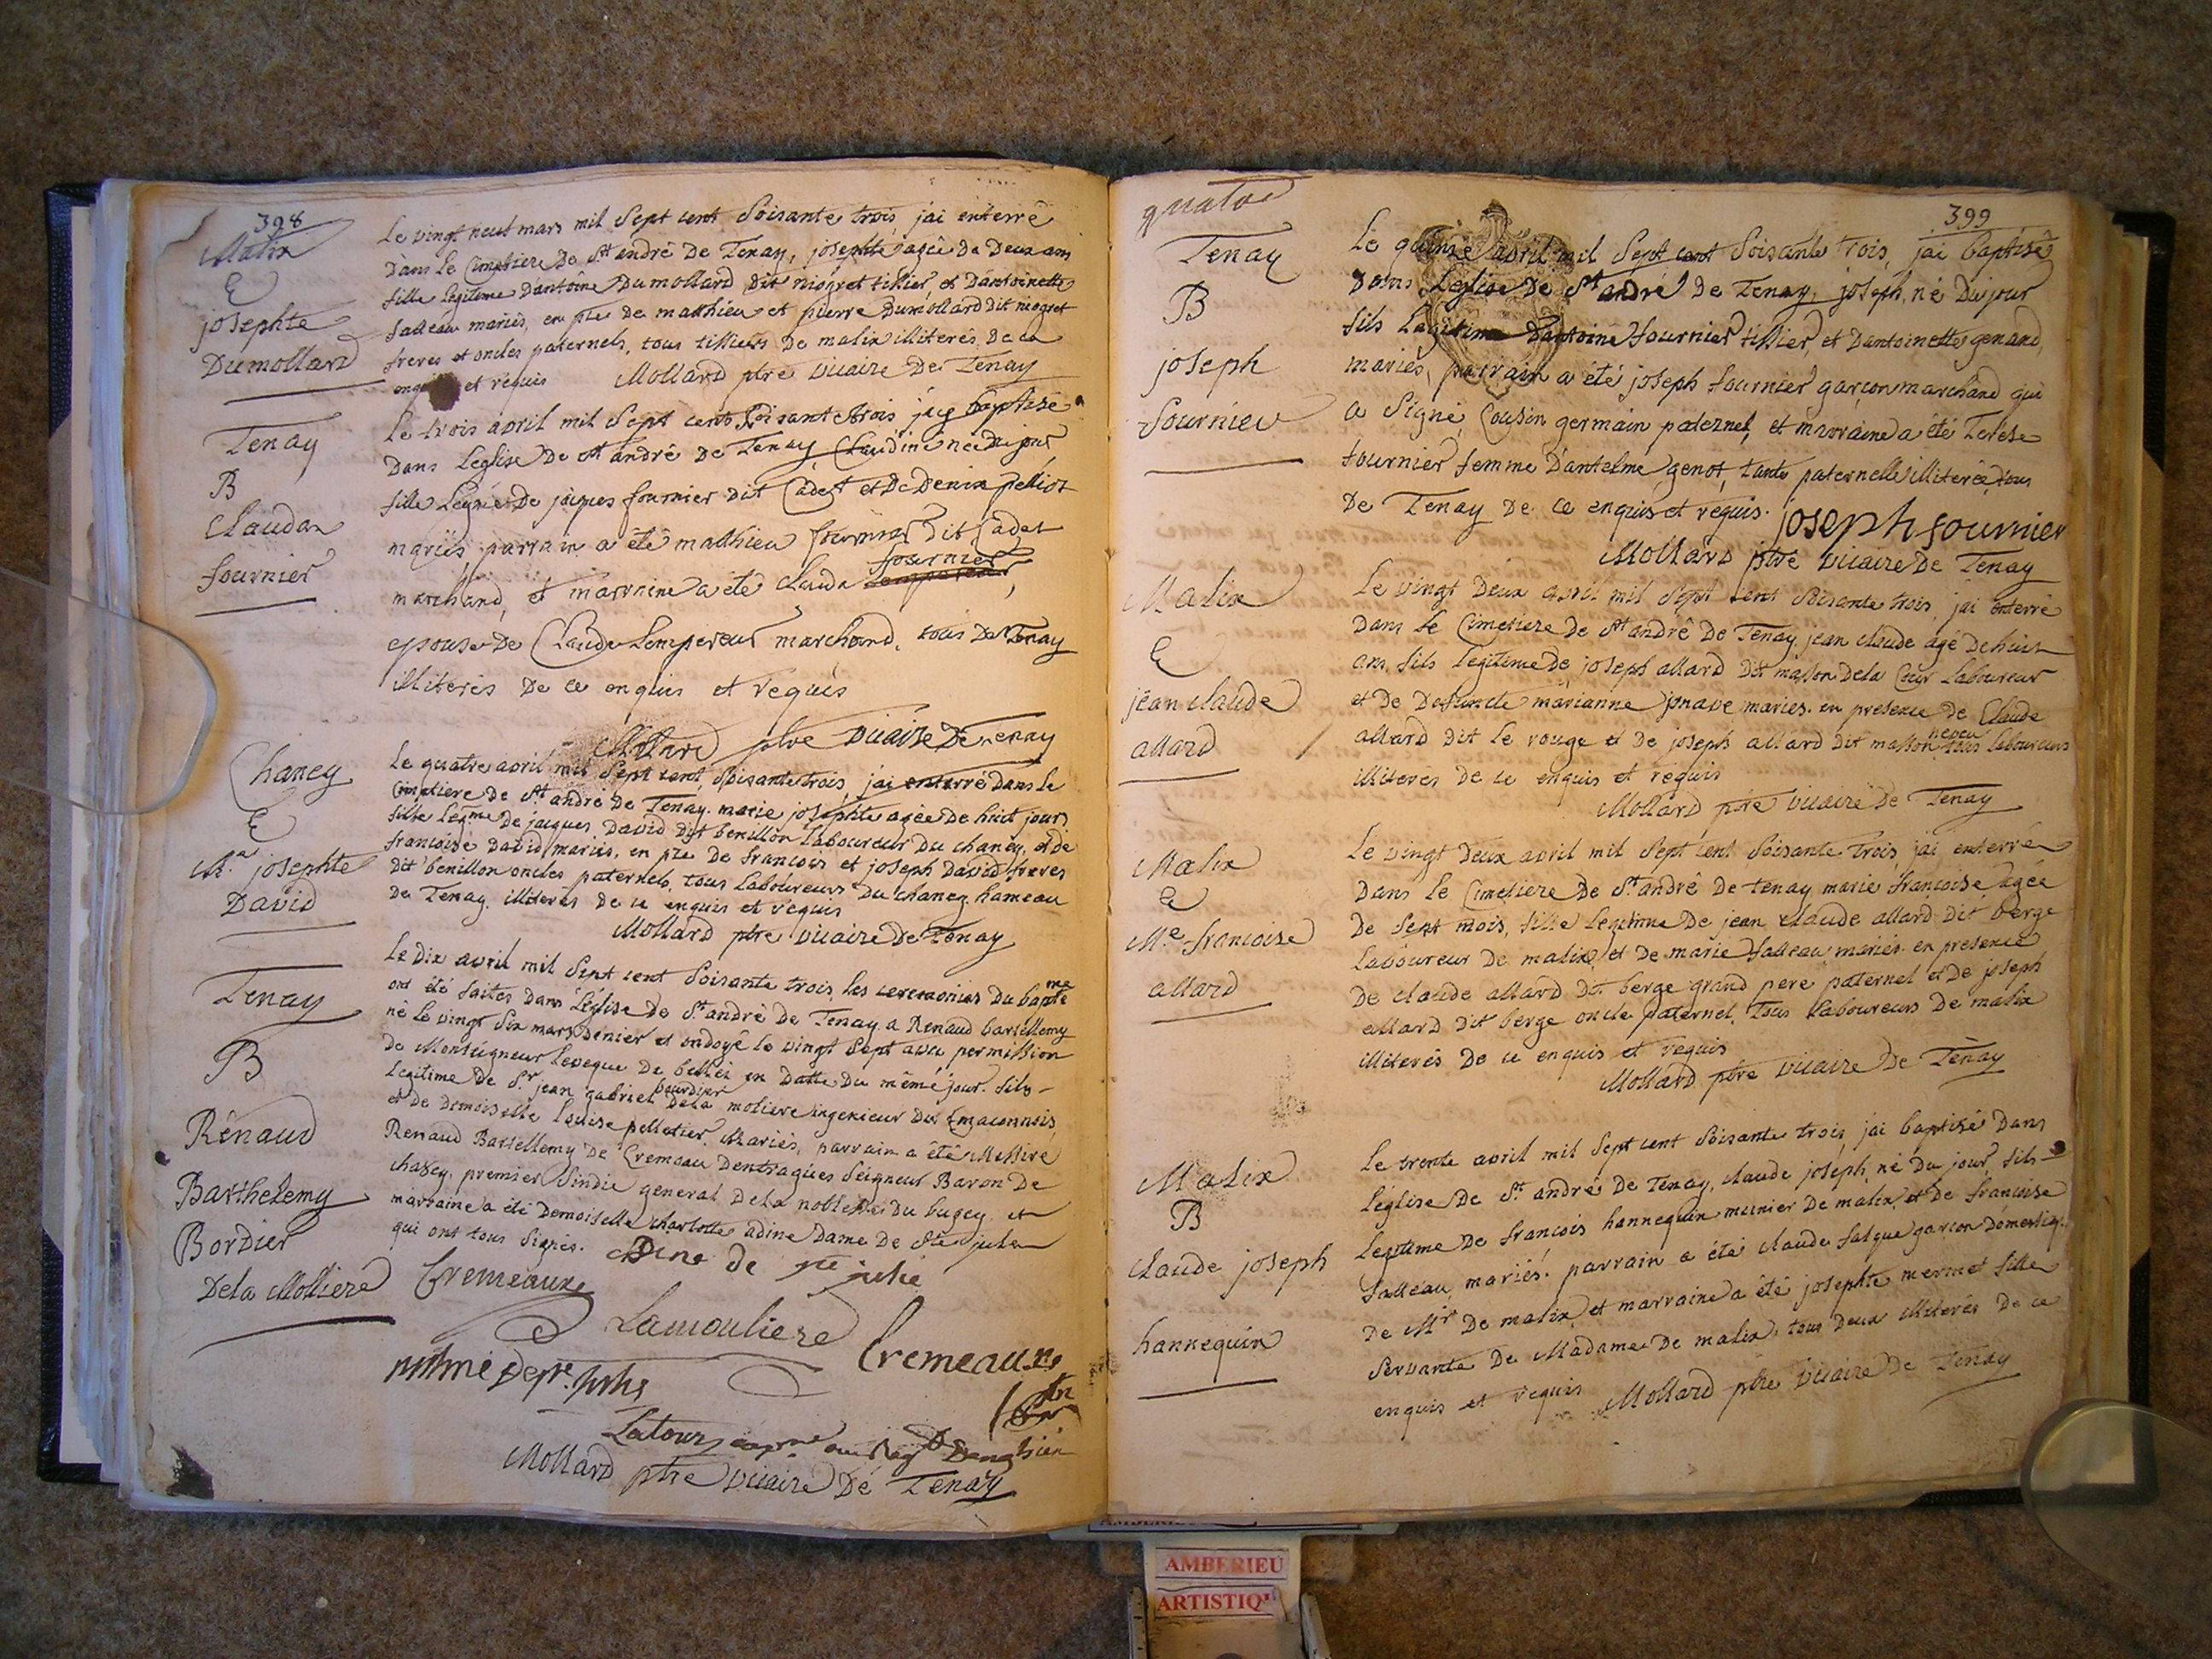 398
Malix
E
josephte
Dumollard
Le vingt neuf mars mil Sept cent Soisante trois, jai enterré
Dans Le Cimetiere De St andré De Tenay, josephte agée De Deux ans
fille legitime Dantoine Dumollard Dit niogret tillier, et Dantoinette
falleau mariés, en pce de matthieu et pierre Dumollard dit niogret
freres et oncles paternels, tous tilliers De malix illiterés De ce
et requis Mollard ptre vicaire De Tenay
Tenay
B
Claudine
fournier
Le trois april mil Sept cents Soisante trois, jay baptisé
Dans Leglise De st andré De Tenay Claudine née Du jour
fille De jacques fournier Dit Cadet et De Denise pelliot
mariés parrain a été matthieu fournier Dit Cadet
fournier
marchand, et marraine a été Clauda Lempereur,
epouse De Claude Lempereur marchand. tous De Tenay
illiterés De ce enquis et requis
Mollard ptre vicaire De Tenay
Chaney
E
M.a josephte
David
Le quatre avril mil Sept cent, Soisante trois, j'ai enterré Dans le
Cimetiere de St andré De Tenay. marie josephte agée De huit jours
fille Legme De jacques David Dit benillon Laboureur Du chaney, et de
francoise David mariés, en pce De francois et joseph David freres
dit benillon oncles paternels, tous Laboureurs Du chaney hameau
De Tenay. illiterés De ce enquis et requis
Mollard ptre vicaire De Tenay
Tenay
B
Rénaud
Barthelemy
Bordier
Dela Molliere
Le Dix avril mil Sept cent Soisante trois, les ceremonies Du bapteme
ont été faites Dans Léglise De St andré De Tenay a Renaud bartellemy
né le vingt Six mars Denier et ondoyé le vingt Sept avec permission
De Monseigneur leveque De bellei en Datte Du même jour. fils
legitime De Sr jean gabriel bourdier Dela moliere ingenieur Du maconnois
et de Demoiselle louise pelletier. Mariés, parrain a été Messire
Renaud Bartellemy De Cremeau Dentragues Seigneur Baron De
chazey. premier Sindic general Dela noblesse Du bugey et
marraine a été Demoiselle charlotte adine Dame De Ste julie
qui ont tous Signés. adine de ste julie
Cremeaux
Lamouliere
Cremeaux
Latour
Mollard ptre vicaire De Tenay
399
Tenay
B
joseph
fournier
Le quinze avril mil Sept cent Soisante trois, jai baptisé
Dans Leglise De St andré De Tenay, joseph, né Du jour
fils Legitime Dantoine fournier tillier, et Dantoinette genand,
mariés, parrain a été joseph fournier garçon marchand qui
a Signé, Cousin germain paternel, et marraine a été Terese
fournier femme Dantelme genot, tante paternelle illiterée, tous
De Tenay De ce enquis et requis. joseph fournier
Mollard ptre vicaire De Tenay
Malix
E
jean claude
allard
Le vingt Deux avril mil Sept cent Soisante trois, jai enterré
Dans le Cimetiere De St andré De Tenay, jean claude agé De huit
ans, fils legitime de joseph allard Dit masson Dela Cour Laboureur
et De Defuncte marianne jonave mariés. en presence De Claude
allard Dit le rouge et De joseph allard Dit masson neveu tous laboureurs
illiterés De ce enquis et requis
Mollard ptre vicaire De Tenay
Malix
E
M.e francoise
allard
Le vingt Deux avril mil Sept cent Soisante trois, jai enterré
Dans Le Cimetiere De St andré De tenay marie francoise agée
De Sept mois, fille Legitime De jean claude allard Dit berge
Laboureur De malix, et De marie falleau mariés. en presence
De claude allard Dit berge grand pere paternel et De joseph
allard Dit berge oncle paternel. Tous Laboureurs De malix
illiterés De ce enquis et requis
Mollard ptre vicaire De Tenay
Malix
B
claude joseph
hannequin
Le trente avril mil Sept cent Soisante trois, jai baptisé Dans
Léglise De St andré De Tenay, claude joseph, né Du jour, fils
Legitime De francois hannequin munier De malix, et De francoise
falleau, mariés. parrain a été claude falque garcon Domestiq.
De Mr De malix, et marraine a été josephte mermet fille
Servante De Madame De malix. tous Deux illiterés De ce
enquis et requis Mollard ptre vicaire De Tenay
AMBERIEU
ARTISTIQ